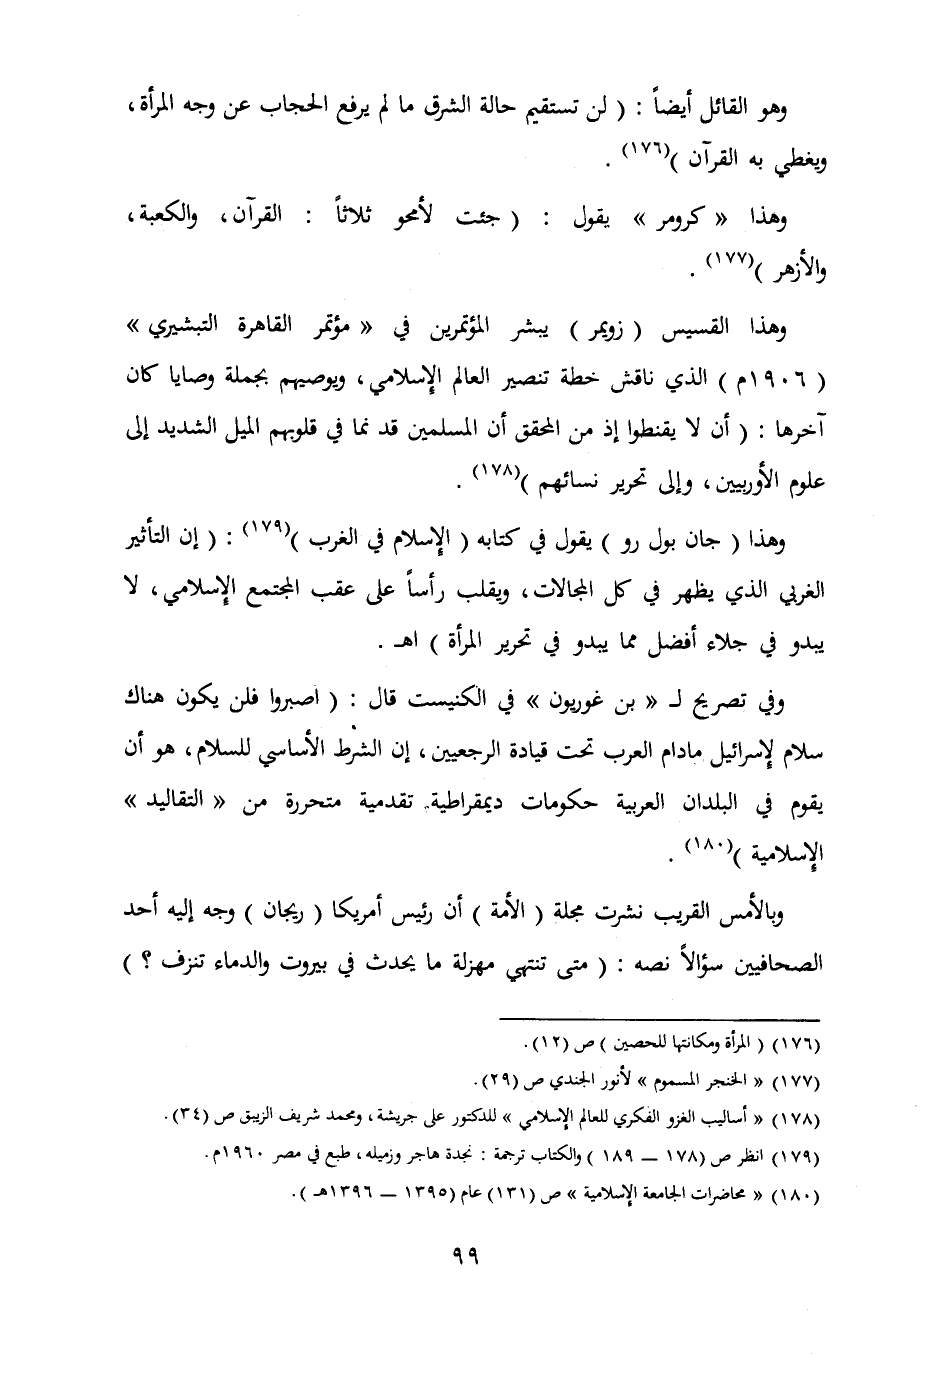 وهو القائل أيضاً : ( لن تستقيم حالة الشرق ما لم يرفع الحجاب عن وجه المرأة ،
ويغطي به القرآن )(١٧٦) .
وهذا « كرومر » يقول : ( جئت لأمحو ثلاثاً : القرآن ، والكعبة ،
والأزهر )(١٧٧) .
وهذا القسيس ( زويمر ) يبشر المؤتمرين في « مؤتمر القاهرة التبشيري »
( ١٩٠٦م ) الذي ناقش خطة تنصير العالم الإسلامي ، ويوصيهم بجملة وصايا كان
آخرها : ( أن لا يقنطوا إذ من المحقق أن المسلمين قد نما في قلوبهم الميل الشديد إلى
علوم الأوربيين ، وإلى تحرير نسائهم )(١٧٨) .
وهذا ( جان بول رو ) يقول في كتابه ( الإسلام في الغرب )(١٧٩) : ( إن التأثير
الغربي الذي يظهر في كل المجالات ، ويقلب رأساً على عقب المجتمع الإسلامي ، لا
يبدو في جلاء أفضل مما يبدو في تحرير المرأة ) اهـ .
وفي تصريح لـ « بن غوريون » في الكنيست قال : ( اصبروا فلن يكون هناك
سلام لإسرائيل مادام العرب تحت قيادة الرجعيين ، إن الشرط الأساسي للسلام ، هو أن
يقوم في البلدان العربية حكومات ديمقراطية تقدمية متحررة من « التقاليد »
الإسلامية )(١٨٠) .
وبالأمس القريب نشرت مجلة ( الأمة ) أن رئيس أمريكا ( ريجان ) وجه إليه أحد
الصحافيين سؤالاً نصه : ( متى تنتهي مهزلة ما يحدث في بيروت والدماء تنزف ؟ )
(١٧٦) ( المرأة ومكانتها للحصين ) ص (١٢) .
(١٧٧) « الخنجر المسموم » لأنور الجندي ص (٢٩) .
(١٧٨) « أساليب الغزو الفكري للعالم الإسلامي » للدكتور على جريشة ، ومحمد شريف الزيبق ص (٣٤) .
(١٧٩) انظر ص (١٧٨ — ١٨٩ ) والكتاب ترجمة : نجدة هاجر وزميله ، طبع في مصر ١٩٦٠م .
(١٨٠) « محاضرات الجامعة الإسلامية » ص (١٣١) عام (١٣٩٥ — ١٣٩٦هـ ) .
٩٩